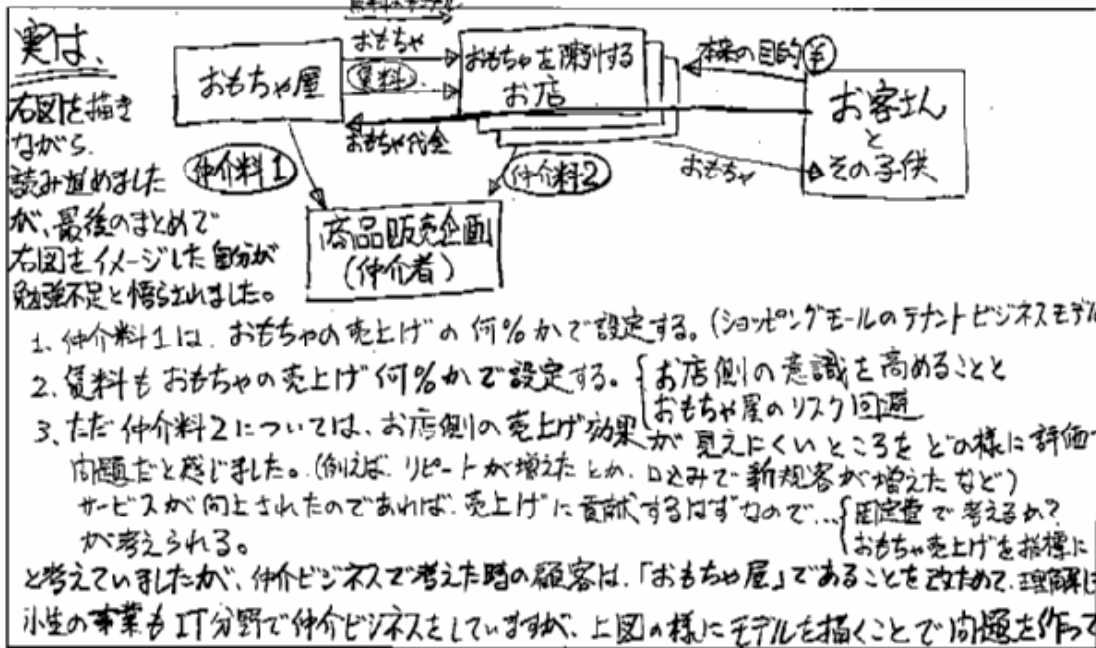 実は、
右図を描き
ながら、
読み進めました
が、最後のまとめで
右図をイメージした自分が
勉強不足と悟らされました。
おもちゃ屋
おもちゃ
賃料
おもちゃ代金
おもちゃを陳列する
お店
本来の目的 ¥
お客さん
と
その子供
おもちゃ
仲介料1
仲介料2
商品販売企画
(仲介者)
1. 仲介料1は、おもちゃの売上げの何%かで設定する。(ショッピングモールのテナントビジネスモデル
2. 賃料もおもちゃの売上げ何%かで設定する。{お店側の意識を高めることと
おもちゃ屋のリスク回避
3. ただ仲介料2については、お店側の売上げ効果が見えにくいところをどの様に評価
問題だと感じました。(例えば、リピートが増えたとか、口込みで新規客が増えたなど)
サービスが向上されたのであれば、売上げに貢献するはずなので…{固定費で考えるか?
おもちゃ売上げを指標に
が考えられる。
と考えていましたが、仲介ビジネスで考えた時の顧客は、「おもちゃ屋」であることを改ためて、理解し
小生の事業もIT分野で仲介ビジネスをしていますが、上図の様にモデルを描くことで問題を作って